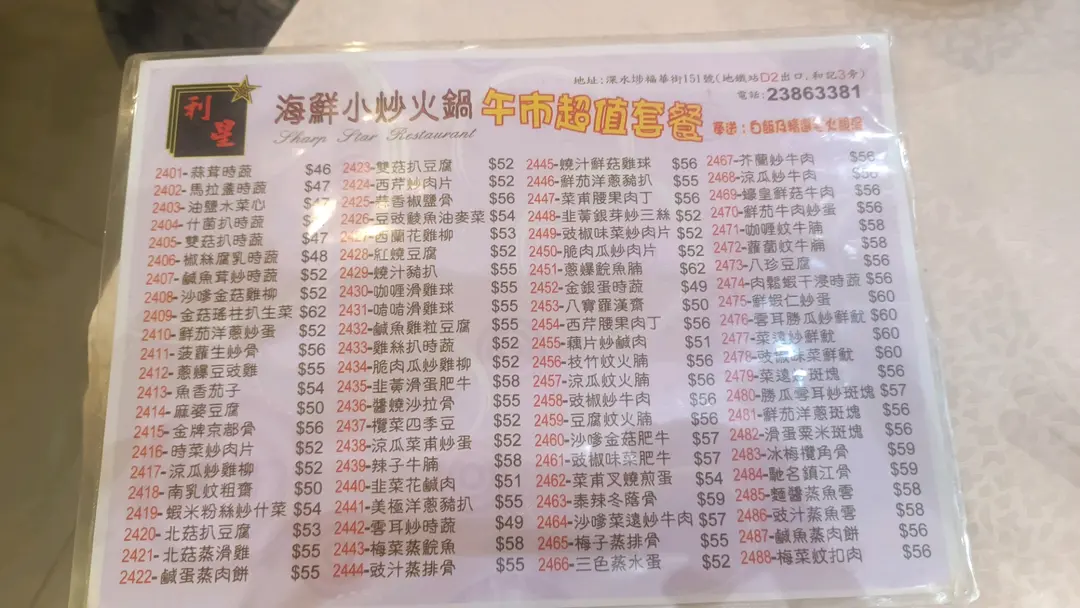 利星
海鮮小炒火鍋
午市超值套餐
Sharp Star Restaurant
地址:深水埗福華街151號(地鐵站D2出口,和記3旁)
電話:23863381
2401-蒜茸時蔬 $46
2402-馬拉盞時蔬 $47
2403-油鹽水菜心
2404-什菌扒時蔬
2405-雙菇扒時蔬 $47
2406-椒絲腐乳時蔬 $48
2407-鹹魚茸炒時蔬 $52
2408-沙嗲金菇雞柳 $52
2409-金菇瑤柱扒生菜 $62
2410-鮮茄洋蔥炒蛋 $52
2411-菠蘿生炒骨 $56
2412-蔥爆豆豉雞 $55
2413-魚香茄子 $54
2414-麻婆豆腐 $50
2415-金牌京都骨 $56
2416-時菜炒肉片 $52
2417-涼瓜炒雞柳 $52
2418-南乳炆粗齋 $50
2419-蝦米粉絲炒什菜 $54
2420-北菇扒豆腐 $53
2421-北菇蒸滑雞 $55
2422-鹹蛋蒸肉餅 $55
2423-雙菇扒豆腐 $52
2424-西芹炒肉片 $52
2425-蒜香椒鹽骨 $56
2426-豆豉鯪魚油麥菜 $54
2427-西蘭花雞柳 $53
2428-紅燒豆腐 $52
2429-燒汁豬扒 $55
2430-咖喱滑雞球 $55
2431-啫啫滑雞球 $55
2432-鹹魚雞粒豆腐 $55
2433-雞絲扒時蔬 $52
2434-脆肉瓜炒雞柳 $52
2435-韭黃滑蛋肥牛 $58
2436-醬燒沙拉骨 $55
2437-欖菜四季豆 $52
2438-涼瓜菜甫炒蛋 $52
2439-辣子牛腩 $58
2440-韭菜花鹹肉 $51
2441-美極洋蔥豬扒 $55
2442-雲耳炒時蔬 $49
2443-梅菜蒸鯇魚 $58
2444-豉汁蒸排骨 $55
2445-燒汁鮮菇雞球 $56
2446-鮮茄洋蔥豬扒 $55
2447-菜甫腰果肉丁 $56
2448-韭黃銀芽炒三絲 $52
2449-豉椒味菜炒肉片 $52
2450-脆肉瓜炒肉片 $52
2451-蔥爆鯇魚腩 $62
2452-金銀蛋時蔬 $49
2453-八寶羅漢齋 $50
2454-西芹腰果肉丁 $56
2455-藕片炒鹹肉 $51
2456-枝竹炆火腩 $56
2457-涼瓜炆火腩 $56
2458-豉椒炒牛肉 $56
2459-豆腐炆火腩 $56
2460-沙嗲金菇肥牛 $57
2461-豉椒味菜肥牛 $57
2462-菜甫叉燒煎蛋 $54
2463-泰辣冬蔭骨 $59
2464-沙嗲菜遠炒牛肉 $57
2465-梅子蒸排骨 $55
2466-三色蒸水蛋 $52
2467-芥蘭炒牛肉 $56
2468-涼瓜炒牛肉 $56
2469-蠔皇鮮菇牛肉 $56
2470-鮮茄牛肉炒蛋 $56
2471-咖喱炆牛腩 $58
2472-蘿蔔炆牛腩 $58
2473-八珍豆腐 $56
2474-肉鬆蝦干浸時蔬 $56
2475-鮮蝦仁炒蛋 $60
2476-雲耳勝瓜炒鮮魷 $60
2477-菜遠炒鮮魷 $60
2478-豉椒味菜鮮魷 $60
2479-菜遠炒斑塊 $56
2480-勝瓜雲耳炒斑塊 $57
2481-鮮茄洋蔥斑塊 $56
2482-滑蛋粟米斑塊 $56
2483-冰梅欖角骨 $59
2484-馳名鎮江骨 $59
2485-麵醬蒸魚雲 $58
2486-豉汁蒸魚雲 $58
2487-鹹魚蒸肉餅 $56
2488-梅菜炆扣肉 $56